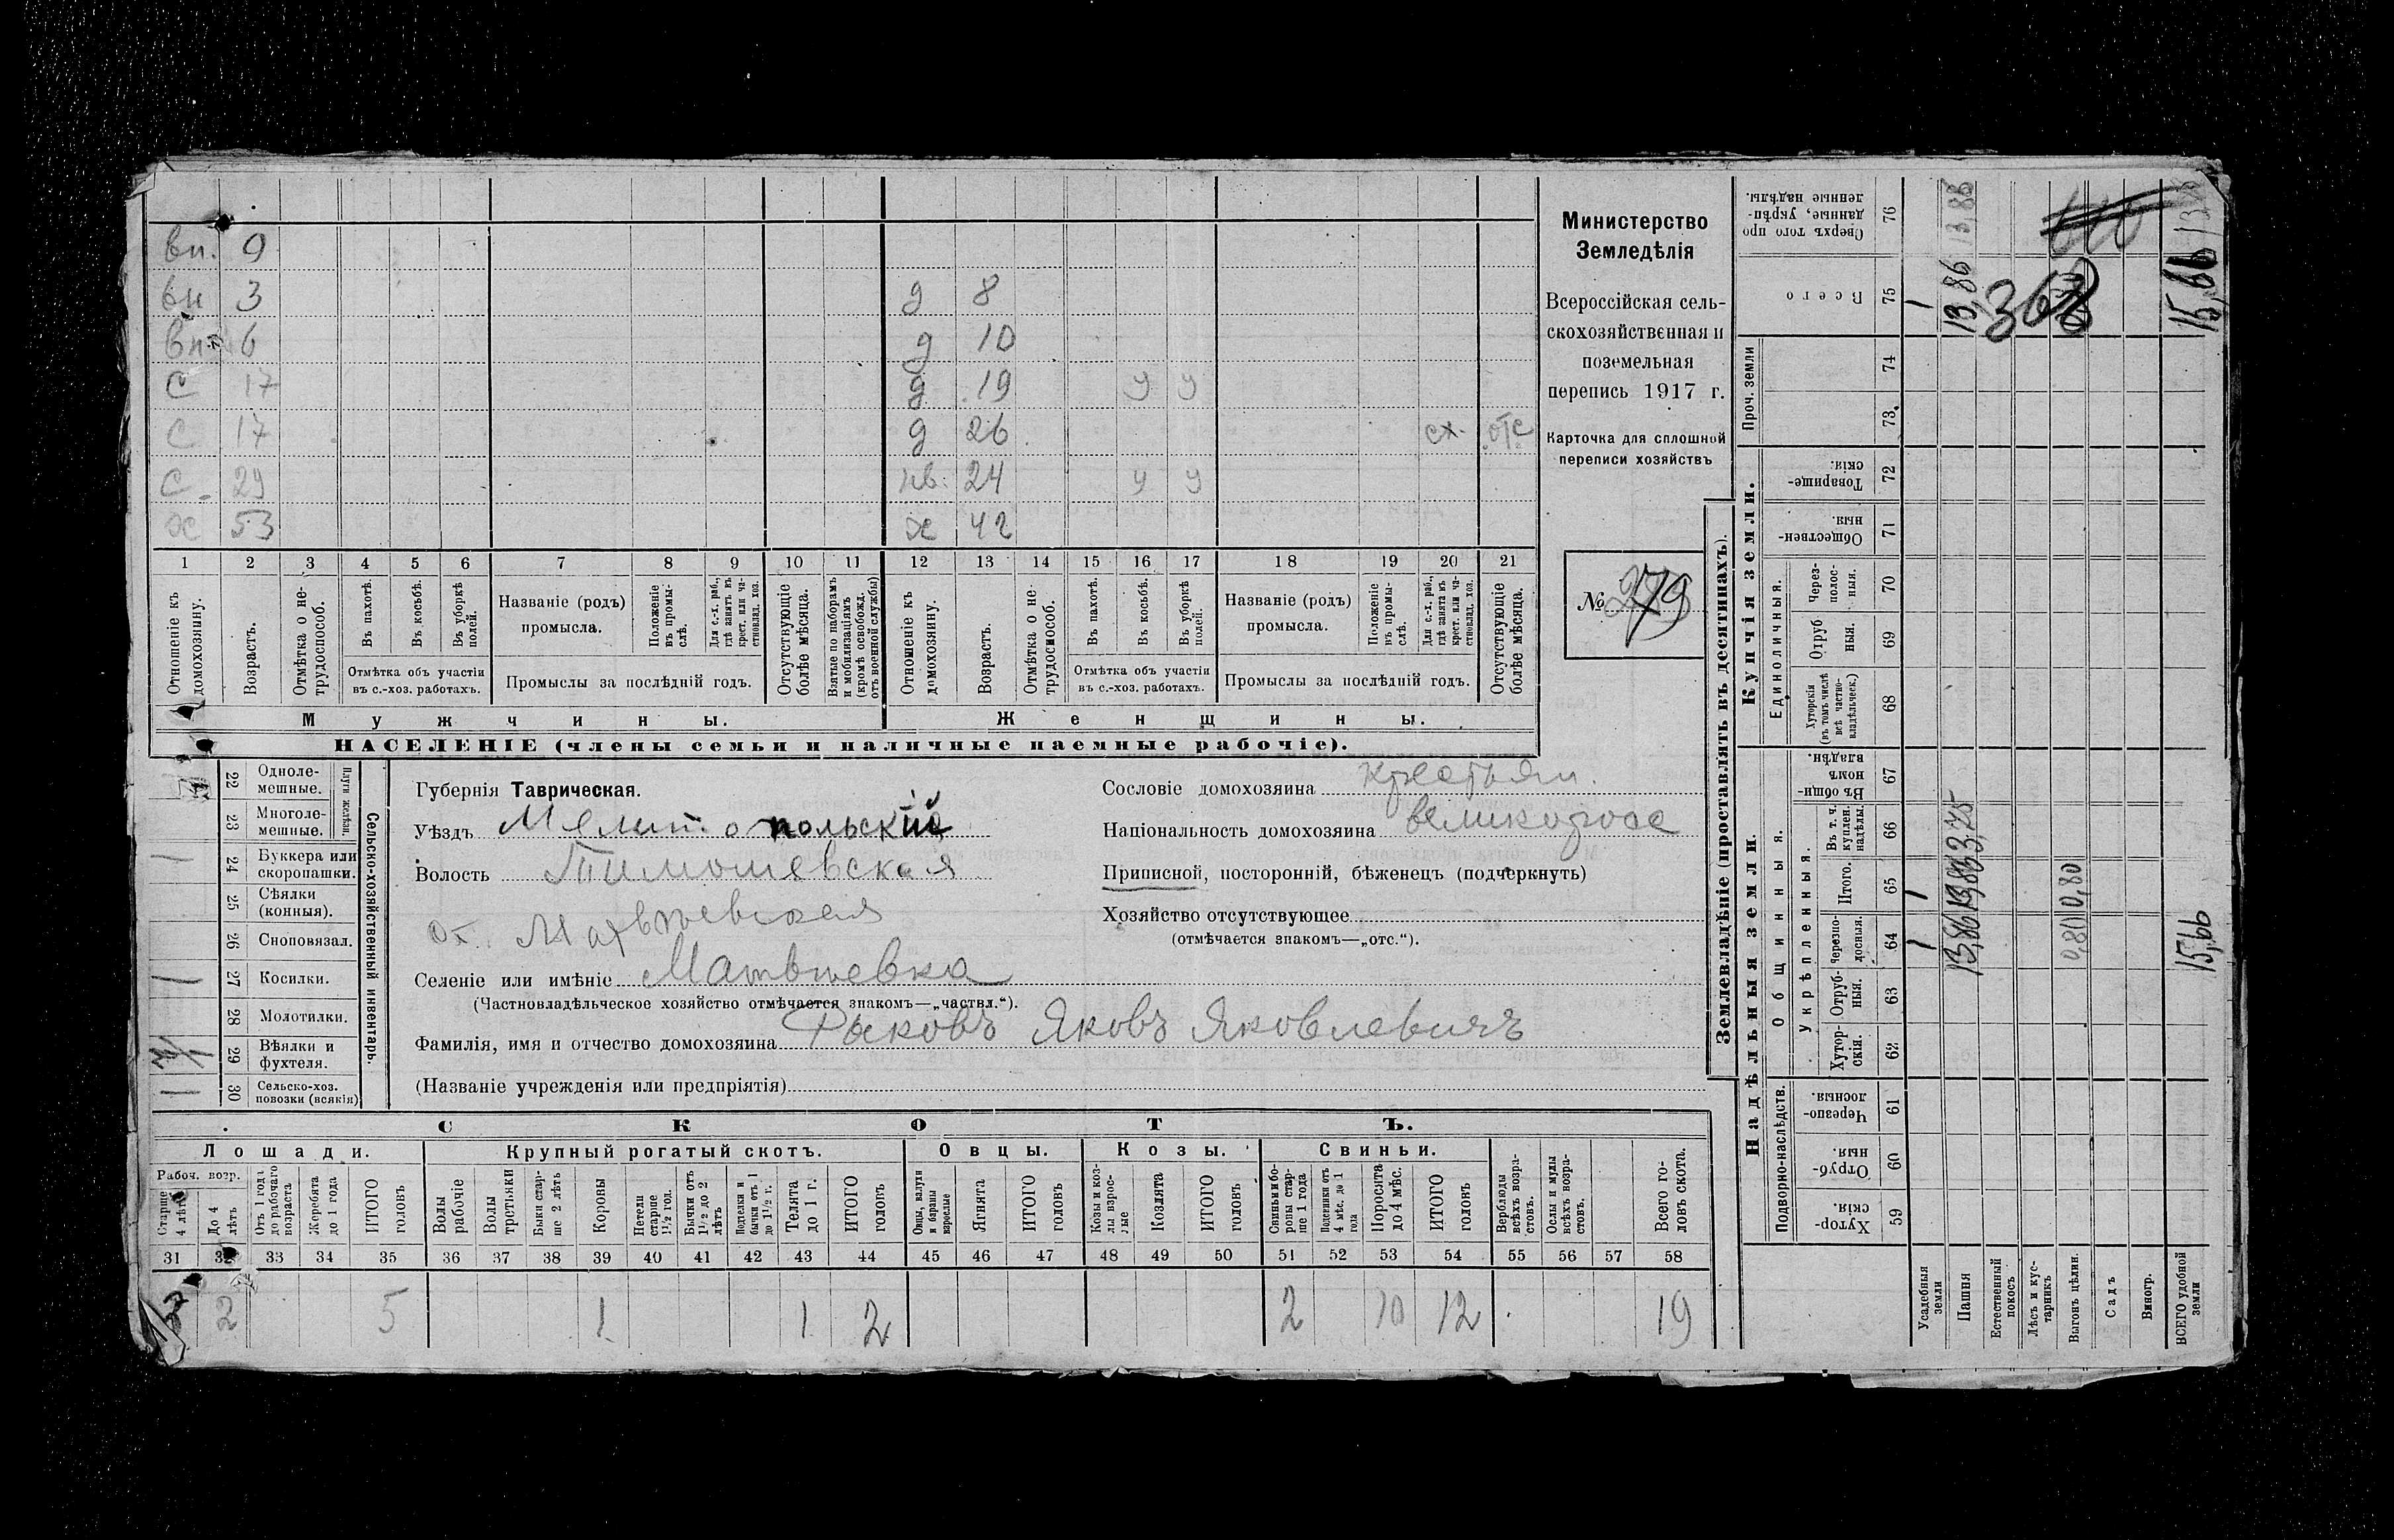 вп. 9
вн 3 д 8
вн 6 д 10
с 17 д 19 у у
с 17 д 26 сх. отс
с 29 нв. 24 у у
х 53 х 42
1 2 3 4 5 6 7 8 9 10 11 12 13 14 15 16 17 18 19 20 21
Отношеніе къ домохозяину.
Возрастъ.
Отмѣтка о не-трудоспособ.
Въ пахотѣ.
Въ косьбѣ.
Въ уборкѣ полей.
Отмѣтка объ участіи
въ с.-хоз. работахъ.
Названіе (родъ)
промысла.
Положеніе въ промы-слѣ.
Для с.-х. раб., гдѣ занятъ въ крест. или ча-стновлад. хоз.
Промыслы за послѣдній годъ.
Отсутствующіе болѣе мѣсяца.
Взятые по наборамъ и мобилизаціямъ (кромѣ освобожд. отъ военной службы)
Отношеніе къ домохозяину.
Возрастъ.
Отмѣтка о не-трудоспособ.
Въ пахотѣ.
Въ косьбѣ.
Въ уборкѣ полей.
Отмѣтка объ участіи
въ с.-хоз. работахъ.
Названіе (родъ)
промысла.
Положеніе въ промы-слѣ.
Для с.-х. раб., гдѣ занята въ крест. или ча-стновлад. хоз.
Промыслы за послѣдній годъ.
Отсутствующіе болѣе мѣсяца.
Мужчины.
Женщины.
НАСЕЛЕНІЕ (члены семьи и наличные наемные рабочіе).
Министерство
Земледѣлія
Всероссійская сель-
скохозяйственная и
поземельная
перепись 1917 г.
Карточка для сплошной
переписи хозяйствъ
№ 79
Сельско-хозяйственный инвентарь.
Плуги желѣзн.
22 Одноле-мешные.
23 Многоле-мешные.
1 24 Буккера или скоропашки.
25 Сѣялки (конныя).
26 Сноповязал.
1 27 Косилки.
28 Молотилки.
29 Вѣялки и фухтеля.
1 30 Сельско-хоз. повозки (всякія)
Губернія Таврическая.
Уѣздъ Мелитопольскій
Волость Тимошевская
Селеніе или имѣніе Матвѣевка
(Частновладѣльческое хозяйство отмѣчается знакомъ—„частвл.“).
Фамилія, имя и отчество домохозяина Рыковъ Яковъ Яковлевичъ
(Названіе учрежденія или предпріятія)
Сословіе домохозяина крестьян.
Національность домохозяина великоросс
Приписной, посторонній, бѣженецъ (подчеркнуть)
Хозяйство отсутствующее
(отмѣчается знакомъ—„отс.“).
СКОТЪ.
Лошади. Крупный рогатый скотъ. Овцы. Козы. Свиньи.
Рабоч. возр.
Старше 4 лѣтъ
До 4 лѣтъ
Отъ 1 года до рабочаго возраста
Жеребята до 1 года
ИТОГО головъ
Волы рабочіе
Волы третьяки
Быки стар-ше 2 лѣтъ
Коровы
Нетели старше 1½ год.
Бычки отъ 1½ до 2 лѣтъ
Подтелки и бычки отъ 1 до 1½ г.
Телята до 1 г.
ИТОГО головъ
Овцы, валухи и бараны взрослые
Ягнята
ИТОГО головъ
Козы и коз-лы взрос-лые
Козлята
ИТОГО головъ
Свиньи и бо-ровы стар-ше 1 года
Подсвинки отъ 4 мѣс. до 1 года
Поросята до 4 мѣс.
ИТОГО головъ
Верблюды всѣхъ возра-стовъ.
Ослы и мулы всѣхъ возра-стовъ.
Всего го-ловъ скота.
31 32 33 34 35 36 37 38 39 40 41 42 43 44 45 46 47 48 49 50 51 52 53 54 55 56 57 58
3 2 5 1 1 2 2 10 12 19
Землевладѣніе (проставлять въ десятинахъ).
Надѣльныя земли. Купчія земли.
Подворно-наслѣдств.
Общинныя.
Укрѣпленныя.
Единоличныя.
Проч. земли
Хутор-скія. 59
Отруб-ныя. 60
Черезпо-лосныя. 61
Хутор-скія. 62
Отруб-ныя. 63
Черезпо-лосныя. 64
Итого. 65
Въ т. ч. куплен. надѣлы. 66
Въ общи-номъ владѣн. 67
Хуторскія (въ томъ числѣ всѣ частно-владѣльческ.) 68
Отруб ныя. 69
Через-полос-ныя. 70
Обществен-ныя. 71
Товарище-скія. 72
73.
74
Всего 75
Сверхъ того про данные, укрѣп-ленные надѣлы. 76
Усадебныя земли 1 1 1
Пашня 13,86 13,86 3,75 13,86 13,86
Естественный покосъ 368
Лѣсъ и кус-тарникъ
Выгонъ цѣлин. 0,80 0,80
Садъ
Виногр.
ВСЕГО удобной земли 15,66 15,66